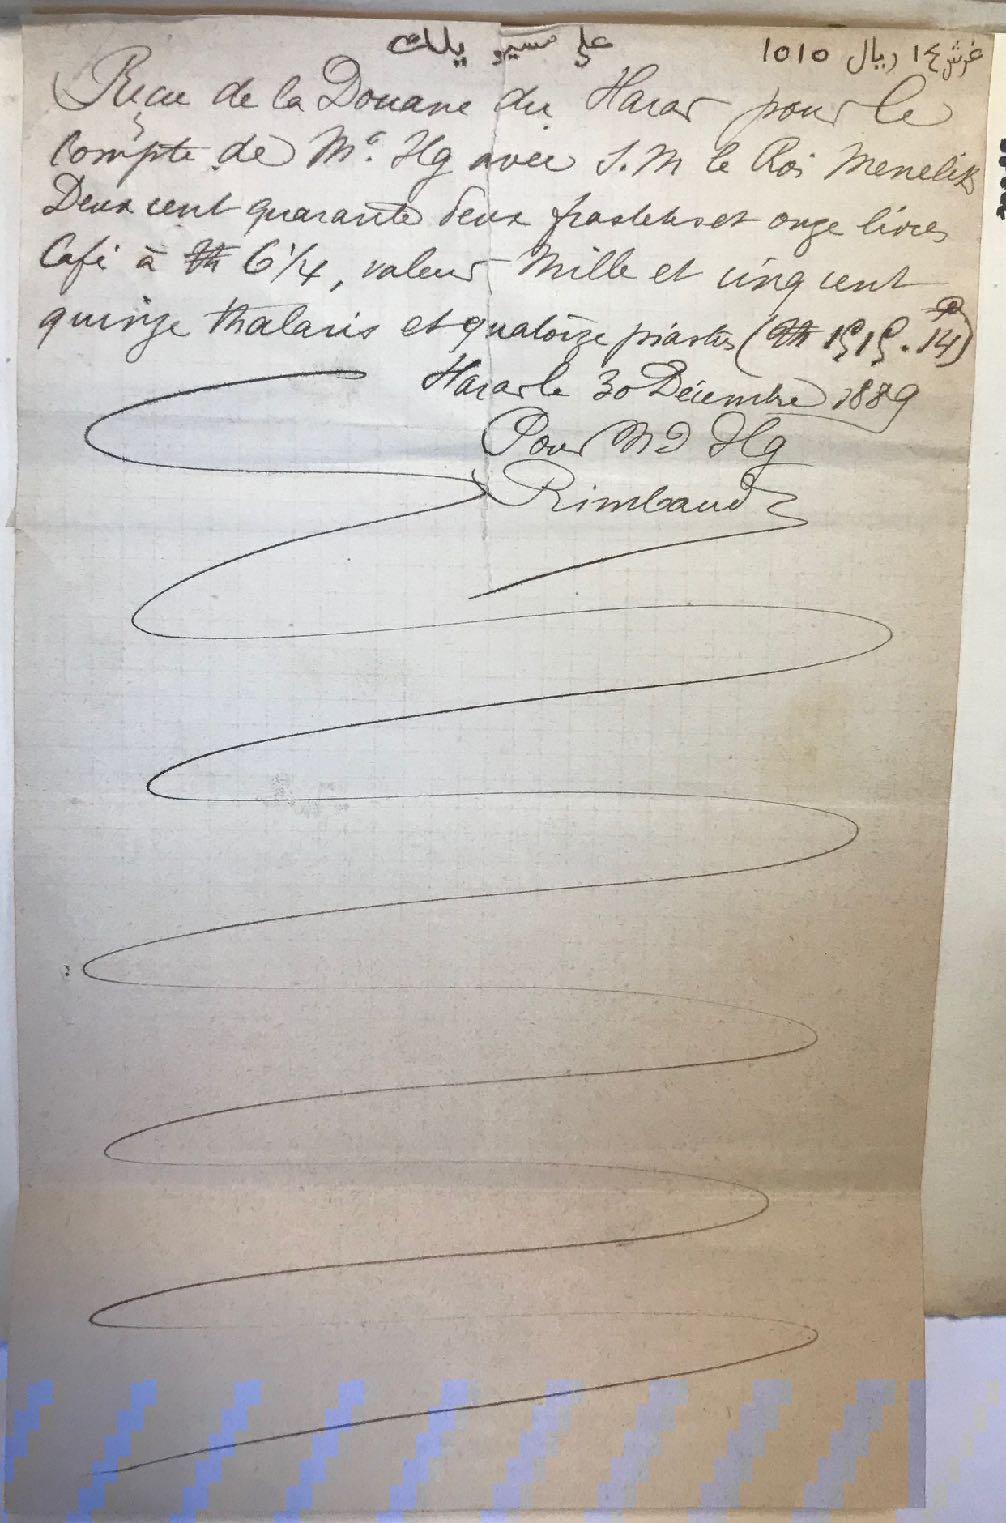 على مسيو يلك
غرش ١٤ ريال ١٥١٥
Reçu de la Douane du Harar pour le
Compte de Mr. Ilg avec S. M le Roi Menelik
Deux cent quarante deux fraslehs et onze livres
Café à th 6 1/4, valeur Mille et cinq cent
quinze thalaris et quatorze piastres (th 1515. p 14)
Harar le 30 Décembre 1889
Pour Mr Ilg
Rimbaud